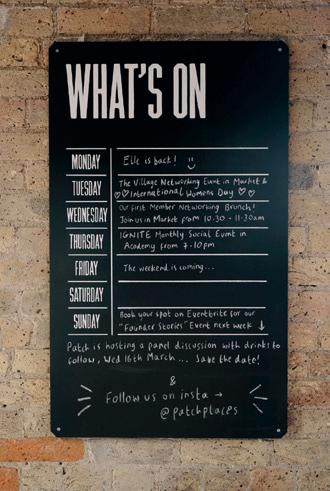 WHAT'S ON
MONDAY
Elle is back!
TUESDAY
The Village Networking Event in Market &
International Womens Day
WEDNESDAY
Our First Member Networking Brunch!
Join us in Market from 10.30 - 11.30am
THURSDAY
IGNITE Monthly Social Event in
Academy from 7-10pm
FRIDAY
The weekend is coming...
SATURDAY
SUNDAY
Book your spot on Eventbrite for our
"Founder Stories" Event next week ↓
Patch is hosting a panel discussion with drinks to
follow, Wed 16th March... Save the date!
&
Follow us on insta →
@patchplaces